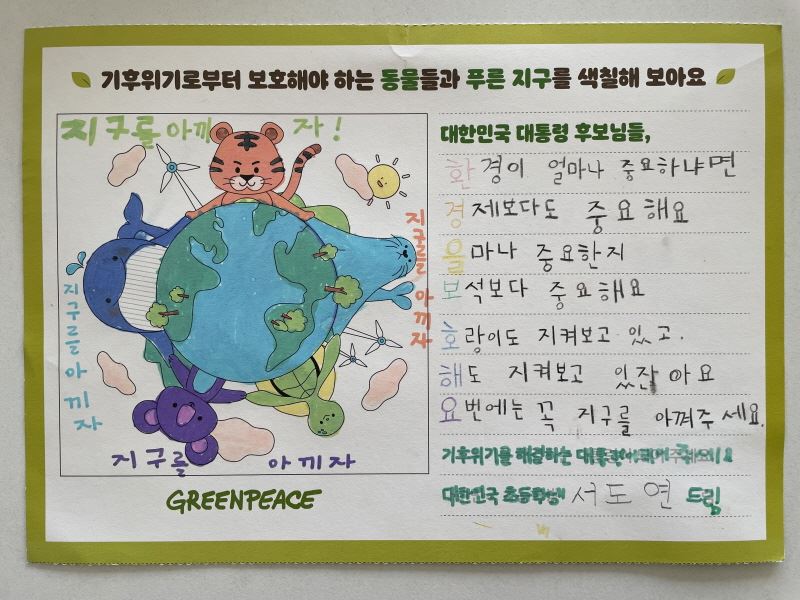 기후위기로부터 보호해야 하는 동물들과 푸른 지구를 색칠해 보아요
지구를 아끼자!
지구를 아끼자
지구를 아끼자
지구를 아끼자
GREENPEACE
대한민국 대통령 후보님들,
환경이 얼마나 중요하냐면
경제보다도 중요해요
을마나 중요한지
보석보다 중요해요
호랑이도 지켜보고 있고.
해도 지켜보고 있잖아요
요번에는 꼭 지구를 아껴주세요.
기후위기를 해결하는 대통령이 되어주세요!
대한민국 초등학생 서도연 드림